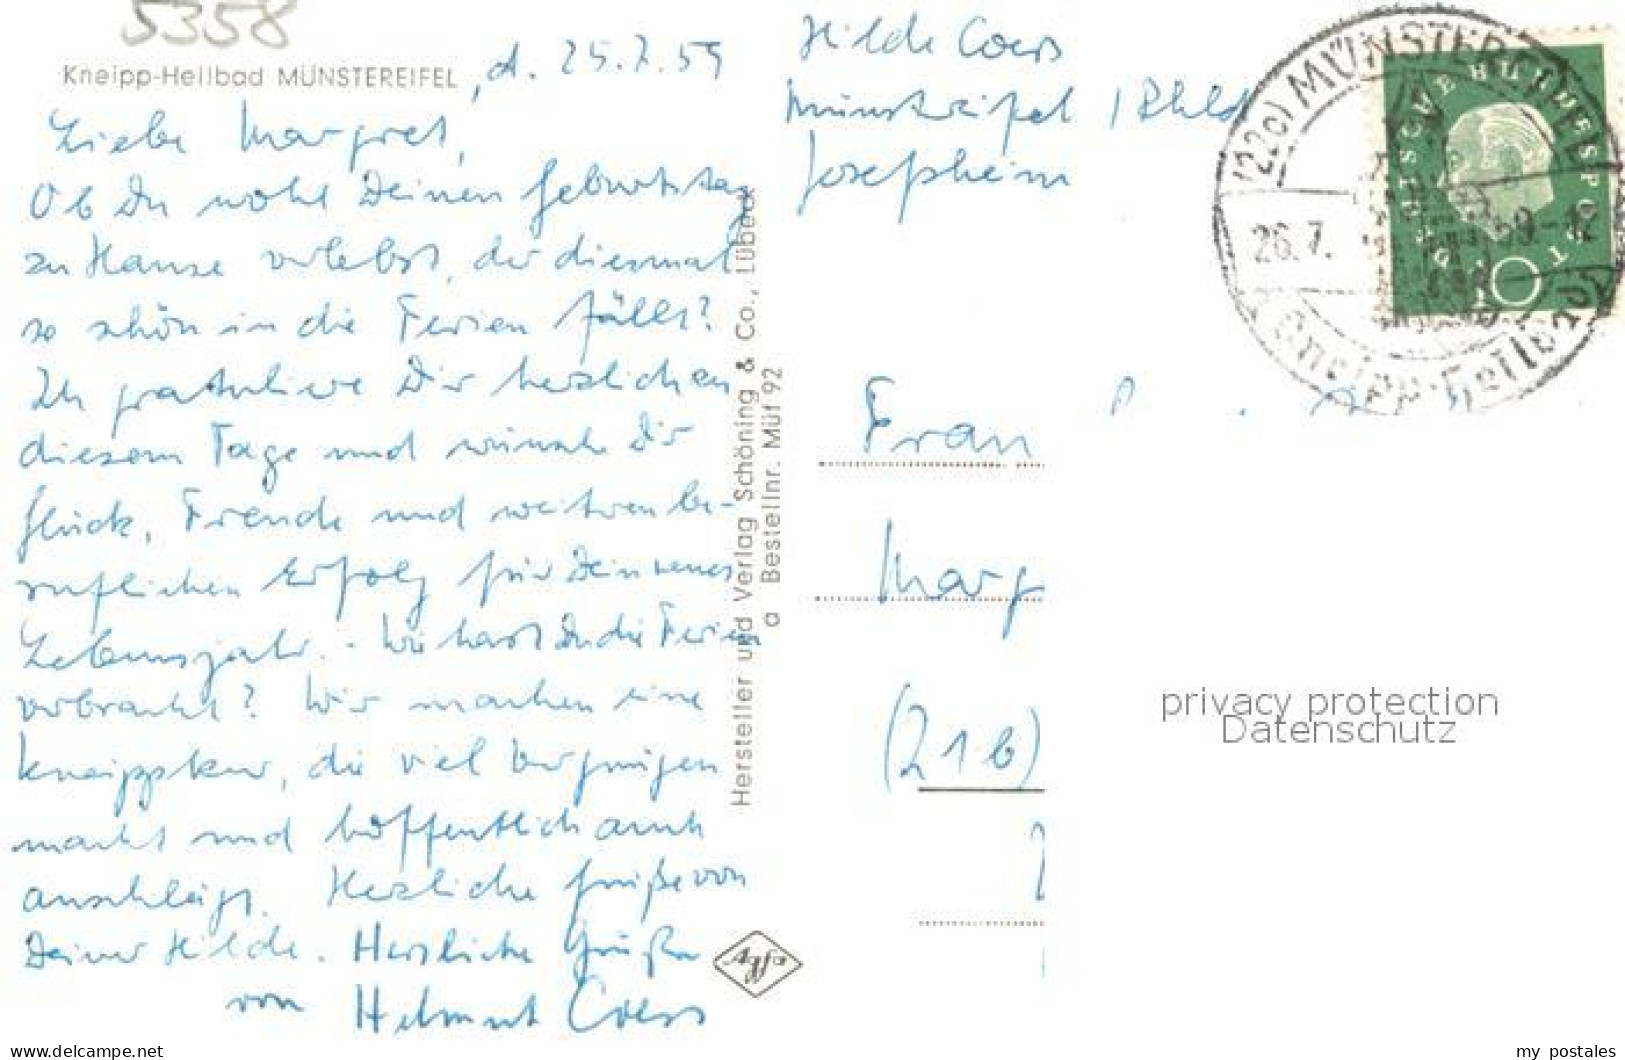 5358
Kneipp-Heilbad MÜNSTEREIFEL, d. 25.7.59
Liebe Margret,
Ob Du wohl Deinen Geburtstag
zu Hause verlebst, der diesmal
so schön in die Ferien fällt?
Ich gratuliere Dir herzlich zu
diesem Tage und wünsche Dir
Glück, Freude und weiteren be-
ruflichen Erfolg für Dein neues
Lebensjahr. - Wie hast Du die Ferien
verbracht? Wir machen eine
Kneippkur, die viel Vergnügen
macht und hoffentlich auch
anschlägt. Herzliche Grüße von
Deiner Hilde. Herzliche Grüße
von Helmut Coers
Hersteller und Verlag Schöning & Co., Lübeck
a Bestellnr. Müf 92
Agfa
Hilde Coers
Münstereifel / Rhld
Josefsheim
(22c) MÜNSTEREIFEL
26.7.59.-12
Kneipp-Heilbad
DEUTSCHE BUNDESPOST
10
Frau
Marg
(21b)
privacy protection
Datenschutz
www.delcampe.net
my_postales